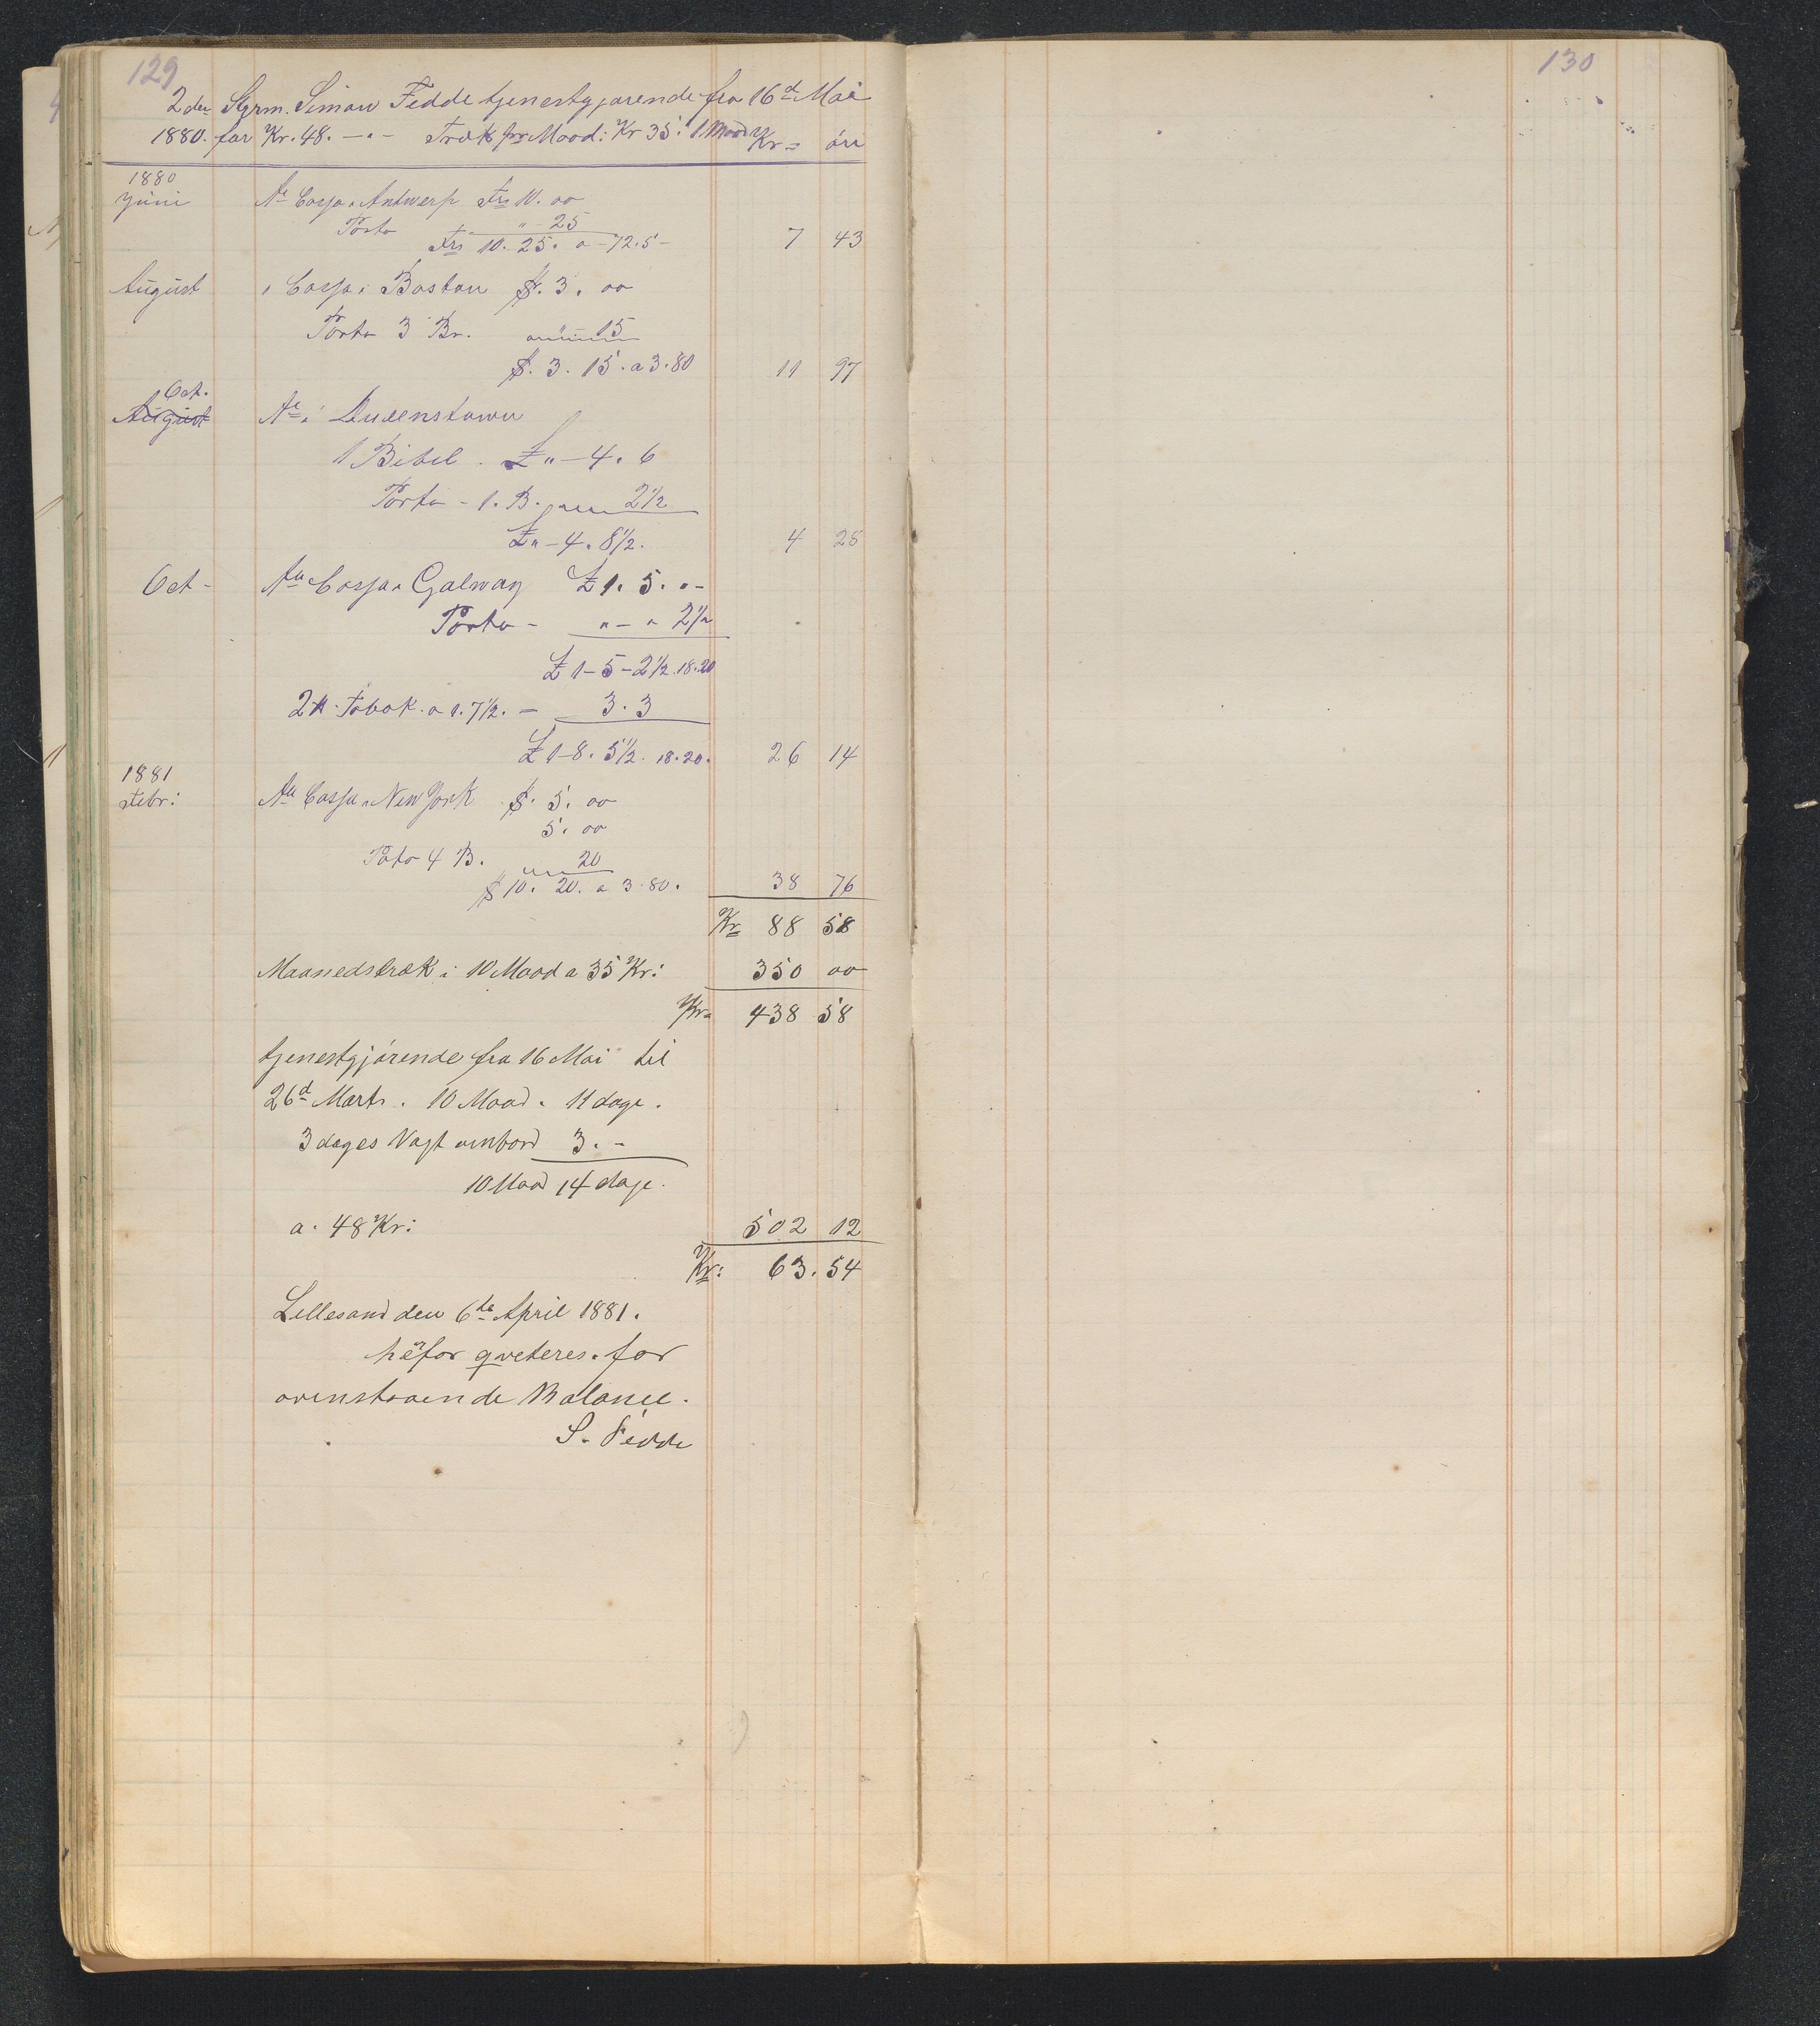 129
2den Styrm. Simon Fedde tjenestgjørende fra 16d Mai
1880. for Kr. 48. — " — Træk pr Maad: Kr 35. 1 Maad
Kr = öre
1880
Juni Ae Cassa i Antwerp Frs 10. 00
Porto " - 25
Frs 10. 25. a - 72.5 - 7 43
August " Cassa i Boston $. 3. 00
Porto 3 Br. " 15
$. 3. 15. a 3.80 11 97
Oct.
August Ae i Queenstown
1 Bibel . £ " - 4. 6
Porto - 1. B. 2½
£ " - 4. 8½. 4 28
Oct - Ae Cassa i Galway £ 1. 5. " -
Porto - " - " 2½
£ 1 - 5 - 2½. 18.20
2 ℔ Tobak. a 1. 7½. - 3. 3
£ 1 - 8. 5½. 18.20. 26 14
1881
Febr: Ae Cassa i New York $. 5. 00
5. 00
Poto 4 B. 20
$ 10. 20. a 3.80. 38 76
Kr 88 58
Maanedstræk i 10 Maad a 35 Kr: 350 00
Kr 438 58
tjenestgjörende fra 16 Mai til
26d Marts. 10 Maad. 11 dage.
3 dages Vagt ombord 3. -
10 Maad 14 dage.
a. 48 Kr: 502 12
Kr: 63. 54
Lillesand den 6te April 1881.
herfor qviteres. for
ovenstaaende Balance.
S. Fedde
130